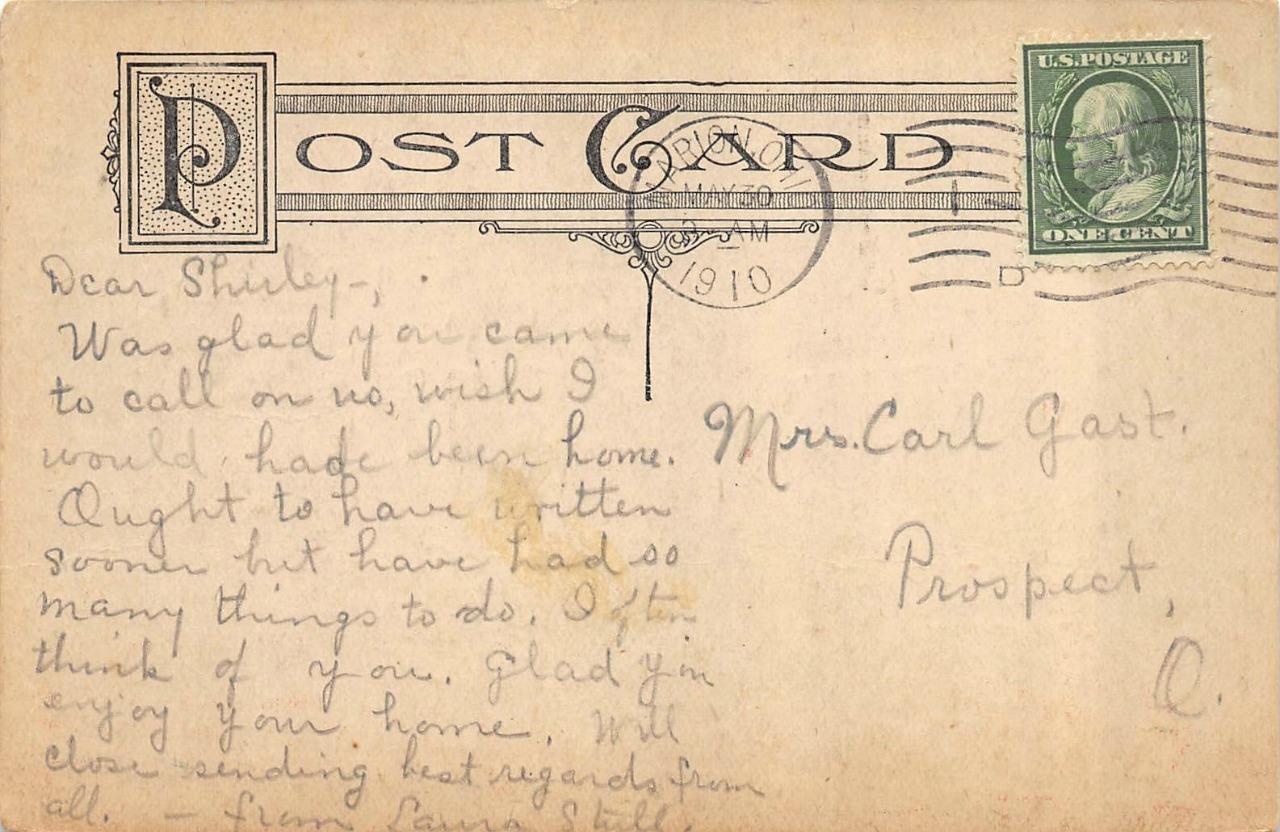 POST CARD
U.S. POSTAGE
ONE CENT
MARION, OHI
MAY 30
AM
1910
D
Dear Shirley-,
Was glad you came
to call on us, wish I
would hade been home.
Ought to have written
sooner but have had so
many things to do. I often
think of you. Glad you
enjoy your home. Will
close sending best regards from
all. — from Laura Stull.
Mrs. Carl Gast.
Prospect,
O.